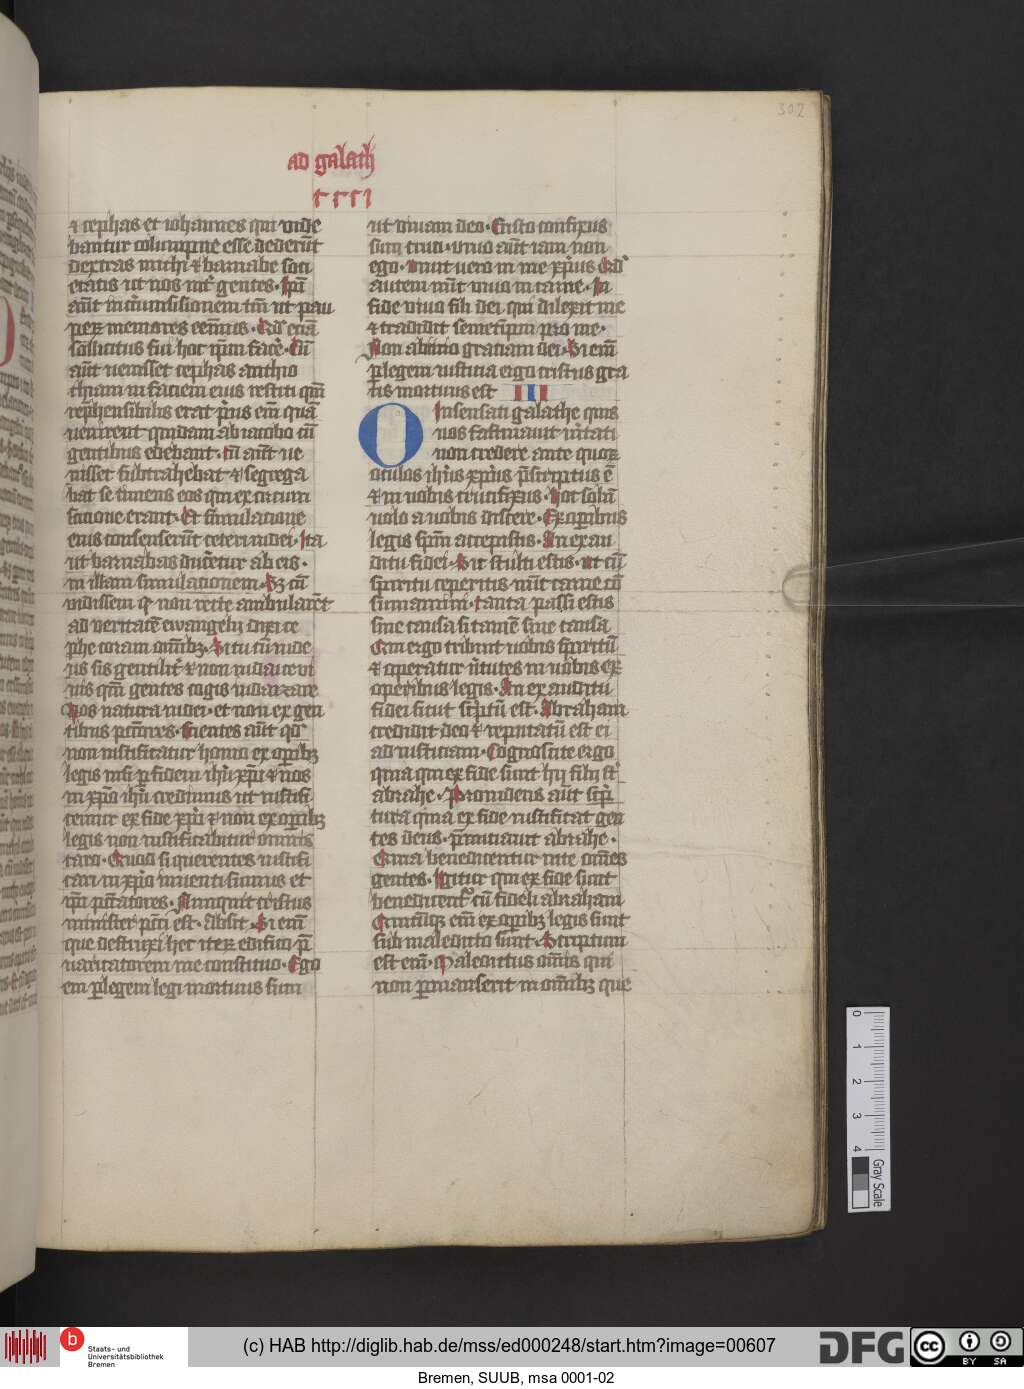 302
ad galath
cccc
⁊ cephas et iohannes qui vide
bantur columpne esse dederūt
dextras michi ⁊ barnabe soci
etatis ut nos int᷑ gentes. Ipi᷑
aūt in circumsisionem tm̄ ut pau
peꝝ memores eēmus. Qd᷑ eciā
sollicitus fui hoc ip̄m facē. Cū
aūt uenisset cephas anthio
chiam in faciem eius restiti qm̄
rep̄hensibilis erat p̄us em̄ quā
uenirent quidam ab iacobo cū
gentibus edebant. cū aūt ue
nisset subtrahebat ⁊ segrega
bat se timens eos qui ex circum
sicione erant. Et simulatione
eius consenserūt ceteri iudei. Ita
ut barnabas duc̄etur ab eis.
in illam simulationem. Sꝫ cū
uidissem ꝙ non recte ambularēt
ad veritatē ewangelii dixi ce
phe coram om̄ibꝫ. Si tu cū iude
us sis gentilit᷑ ⁊ non iudaice vi
uis qm̄ gentes cogis iudaizare
Nos natura iudei. et non ex gen
tibus pccōres. Scientes aūt qd᷑
non iustificatur homo ex opibꝫ
legis nisi ꝑ fidem ihū xp̄i ⁊ nos
in xp̄o ihū credimus ut iustifi
cemur ex fide xp̄i ⁊ non ex opibꝫ
legis non iustificabitur omnis
caro. Quod si querentes iustifi
cari in xp̄o inuenti sumus et
ip̄i pctātores. Numquit cristus
minister pcc̄i est. Absit. Si em̄
que destruxi hec iteꝝ edifico p̄
uaricatorem me constituo. Ego
em̄ ꝑ legem legi mortuus sum
ut viuam deo. Cristo confixus
sum cruci. viuo aūt iam non
ego. uiuit uero in me xp̄us Qd᷑
autem nūc viuo in carne. In
fide viuo filii dei qui dilexit me
⁊ tradidit semetip̄m pro me.
Non abicio gratiam dei. Si em̄
ꝑ legem iusticia ergo cristus gra
tis mortuus est III
O Insensati galathe quis
uos fascinauit ūitati
non credere ante quoꝝ
oculos ihūs xp̄us p̄scriptus ē
⁊ in uobis crucifixus. hoc solū
uolo a uobis discere. Ex opibus
legis spm̄ accepistis. An ex au
ditu fidei. Sic stulti estis. ut cū
spiritu ceperitis nūc carne cō
sumamini. tanta passi estis
sine causa si tamē sine causa
Qui ergo tribuit uobis spiritū
⁊ operatur ūtutes in uobis ex
operibus legis. An ex auditu
fidei sicut sc̄ptū est. Abraham
credidit deo ⁊ reputatū est ei
ad iusticiam. Cognoscite ergo
quia qui ex fide sunt hij filij st᷑
abrahe. Prouidens aūt sc̄p
tura quia ex fide iustificat gen
tes deus. p̄nunciauit abrahe.
Quia benedicentur in te om̄es
gentes. Igitur qui ex fide sunt
benedicent᷑ cū fideli abraham
Quicūqꝫ em̄ ex opibꝫ legis sunt
sub maledicto sunt. Scriptum
est em̄. Maledictus om̄is qui
non ꝑmanserit in om̄ibꝫ que
0 1 2 3 4 Gray Scale
b Staats- und
Universitätsbibliothek
Bremen
(c) HAB http://diglib.hab.de/mss/ed000248/start.htm?image=00607
DFG
cc BY SA
Bremen, SUUB, msa 0001-02